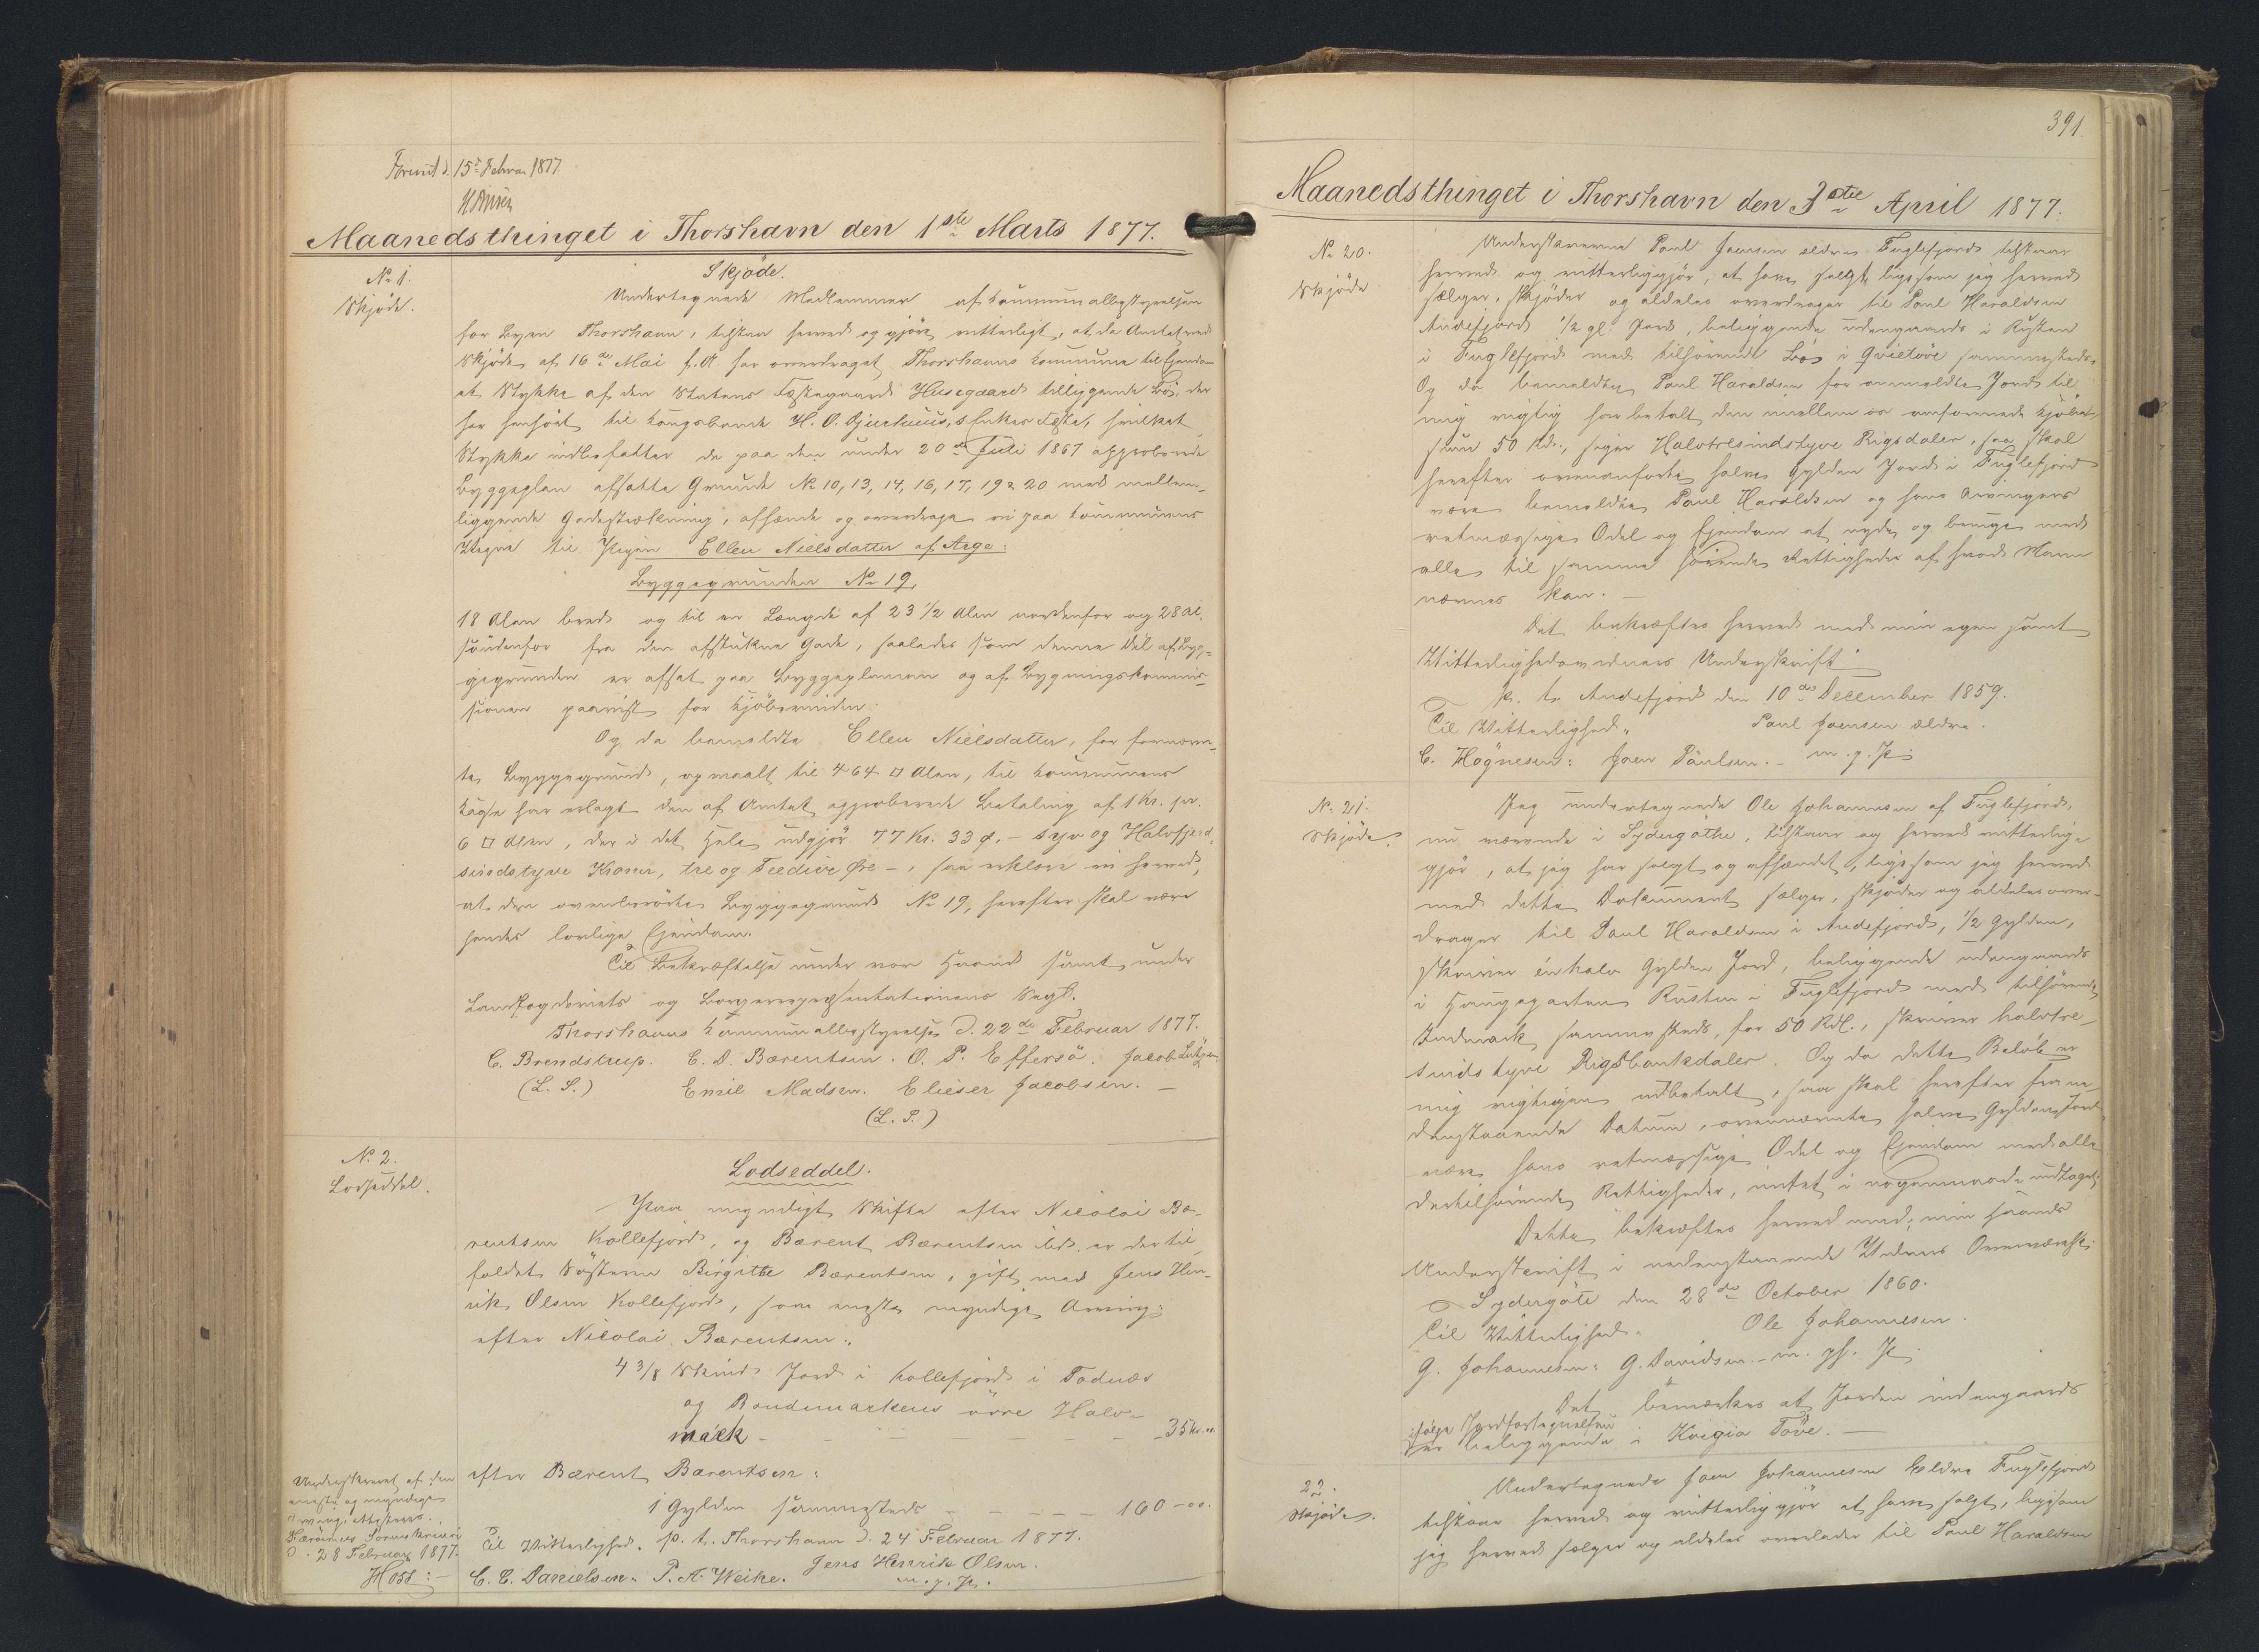 Forevist d. 15de Februar 1877.
Maanedsthinget i Thorshavn den 1ste Marts 1877.
No 1.
Skjøde.
Skjöde.
Undertegnede Medlemmer af Kommunalbestyrelsen
for Byen Thorshavn, tilstaa herved og gjøre vitterligt, at da Amtet ved
Skjøde af 16de Mai f. A. har overdraget Thorshavns Kommune til Eiendom
et Stykke af den Statens Fæstegaard Husegaard tilliggende Bø, der
har henhørt til Kongsbonde H. O. Djurhuus,s Enkes Fæste, hvilket
Stykke indbefatter de paa den under 20de Juli 1867 approberede
Byggeplan afsatte Grunde No 10, 13, 14, 16, 17, 19 & 20 med mellem-
liggende Gadestrækning, afhænde og overdrage vi paa Kommunens
Vegne til Pigen Ellen Nielsdatter af Arge:
Byggegrunden No 19,
18 Alen bred og til en Længde af 23 1/2 Alen nordenfor og 28 Al.
søndenfor fra den afstukne Gade, saaledes som denne Del af Byg-
gegrunden er afsat paa Byggeplanen og af Bygningskommis-
sionen paavist for Kjøberinden.
Og da bemeldte Ellen Nielsdatter, for fornævn-
te Byggegrund, opmaalt til 464 □ Alen, til Kommunens
Kasse har erlagt den af Amtet approberede Betaling af 1 Kr. pr.
6 □ Alen, der i det Hele udgjør 77 Kr. 33 Ø. – Syv og Halvfjerd-
sindstyve Kroner, tre og Tredive Øre –, saa erklære vi herved,
at den ovenberørte Byggegrund No 19, herefter skal være
hendes lovlige Ejendom.
Til Bekræftelse under vor Haand samt under
Landfogderiets og Borgerrepræsentationens Segl.
Thorshavns Kommunalbestyrelse d. 22de Februar 1877.
C. Brendstrup. C. D. Bærentsen. O. P. Effersö. Jacob Lützen.
(L. S.) Emil Madsen. Elieser Jacobsen. –
(L. S.)
No. 2.
Lodseddel.
Lodseddel.
Paa myndigt Skifte efter Nicolai Bæ-
rentsen Kollefjord, og Bærent Bærentsen ibd. er der til
faldet Søsteren Birgitte Bærentsen, gift med Jens Hen-
rik Olsen Kollefjord, som eneste myndige Arving:
efter Nicolai Bærentsen:
4 3/8 Skind Jord i Kollefjord i Todnæs
og Bondemarkens øvre Halv-
mark – – – – – – – 35 Kr. "
efter Bærent Bærentsen:
1 Gylden sammesteds – – – – – 160 – 00.
Til Vitterlighed. p. t. Thorshavn d. 24 Februar 1877.
Jens Henrik Olsen.
C. C. Danielsen. P. A. Weihe. m. p. P.
Underskrevet af den
eneste og myndige
Arving, attesteres.
Færøernes Sorenskriveri
d. 28 Februar 1877.
Høst:
391.
Maanedsthinget i Thorshavn den 3die April 1877.
No 20.
Skjøde
Underskrevne Paul Joensen ældre Fuglefjord tilstaar
herved og vitterliggjør, at have solgt ligesom jeg herved
sælger, skjøder og aldeles overdrager til Paul Haraldsen
Andefjord 1/2 gl. Jord, beliggende udengaards i Rusten
i Fuglefjord med tilhørende Bø i Qvietöve sammesteds.
Og da bemeldte Paul Haraldsen for anmeldte Jord til
mig rigtig har betalt den imellem os omforenede Kjøbe-
sum 50 Rd., siger Halvtresindstyve Rigsdaler, saa skal
herefter ovenanførte halve Gylden Jord i Fuglefjord
være bemeldte Paul Haraldsen og hans Arvingers
retmæssige Odel og Ejendom at nyde og bruge med
alle til samme hørende Rettigheder af hvad Navn
nævnes kan. –
Det bekræftes herved med min egen samt
Vitterlighedsvidners Underskrift
p. t. Andefjord den 10de December 1859.
Til Vitterlighed. Paul Joensen ældre.
C. Högnesen: Joen Paulsen. – m. p. P.
No. 21.
Skjøde.
Jeg undertegnede Ole Johannesen af Fuglefjord,
nu værende i Sydergöthe, tilstaar og herved vitterlig-
gjør, at jeg har solgt og afhændet, ligesom jeg herved
med dette Dokument sælger, skjøder og aldeles over-
drager til Paul Haraldsen i Andefjord, 1/2 Gylden,
skriver én halv Gylden Jord, beliggende udengaards
i Haugagarten Rusten i Fuglefjord med tilhørende
Indmark sammesteds, for 50 Rdl., skriver halvtre-
sindstyve Rigsbankdaler. Og da dette Beløb er
mig rigtigen udbetalt, saa skal herefter fra ne-
denstaaende Datum, ovennævnte halve Gylden Jord
være hans retmæssige Odel og Ejendom med alle
dertilhørende Rettigheder, intet i nogenmaade undtaget.
Dette bekræftes herved med min Haands
Underskrift i nedenstaaende Vidners Overværelse.
Sydergöte den 28de October 1860.
Til Vitterlighed. Ole Johannesen.
G. Johannesen: G. Davidsen. – m. pf. P.
Det bemærkes at Jorden indengaards
ifølge Jordfortegnelsen
er beliggende i Kvigia Töve. –
22.
Skjøde.
Undertegnede Joen Johannesen ældre Fuglefjord
tilstaar herved og vitterliggjør at have solgt, ligesom
jeg herved sælger og aldeles overlader til Paul Haraldsen